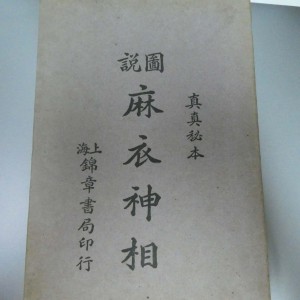 真真秘本
圖說
麻衣神相
上海錦章書局印行